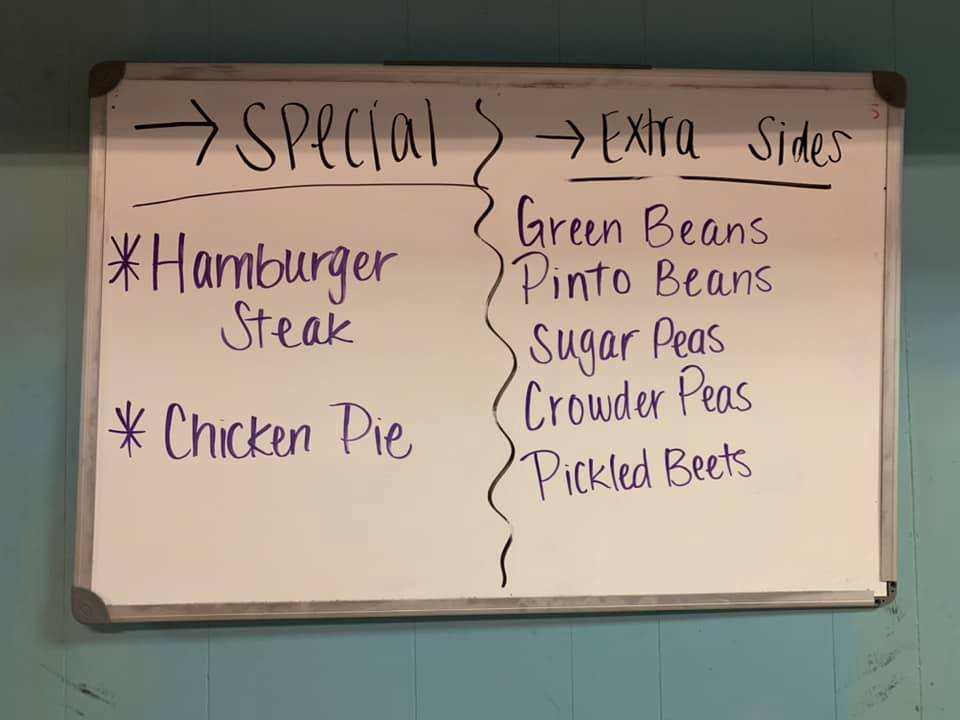 → Special
* Hamburger
Steak
* Chicken Pie
→ Extra Sides
Green Beans
Pinto Beans
Sugar Peas
Crowder Peas
Pickled Beets